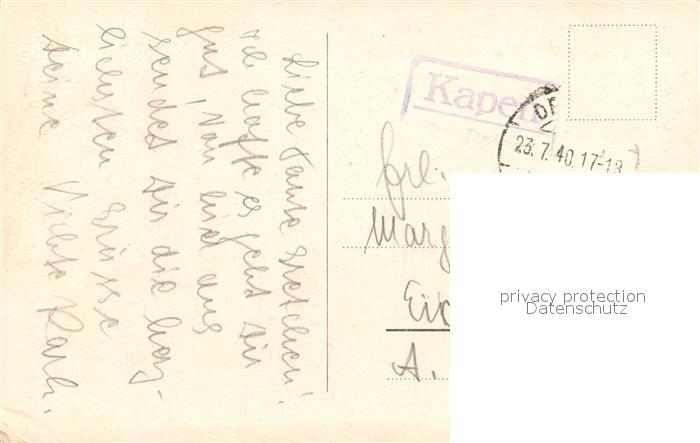 Liebe Tante Gretchen!
Ich hoffe es geht dir
gut, von hier aus
sendet dir die herz-
lichsten Grüsse
deine Nichte
Kapen
23.7.40.17-18
Frl.
Marg
Eic
A.
privacy protection
Datenschutz